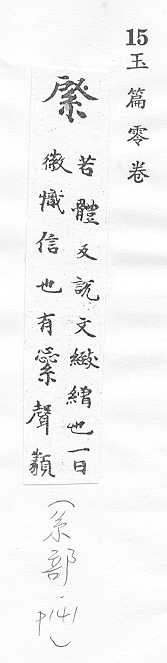 15 玉篇零卷
綮
苦體反說文緻繒也一曰
徽幟信也有聲類
(糸部, P141)